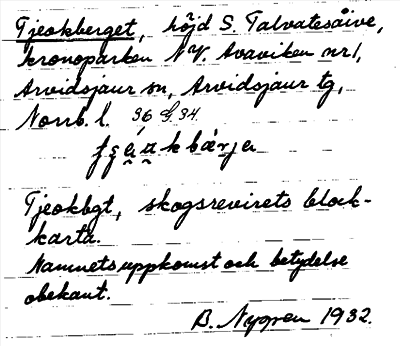 Tjeokberget, höjd S. Talvatesåive,
kronoparken N.V. Avaviken nr 1,
Arvidsjaur sn, Arvidsjaur tg,
Norrb. l. 36 f. 34.
Tjeokbgt, skogsrevirets block-
karta.
Namnets uppkomst och betydelse
obekant.
B. Nygren 1932.